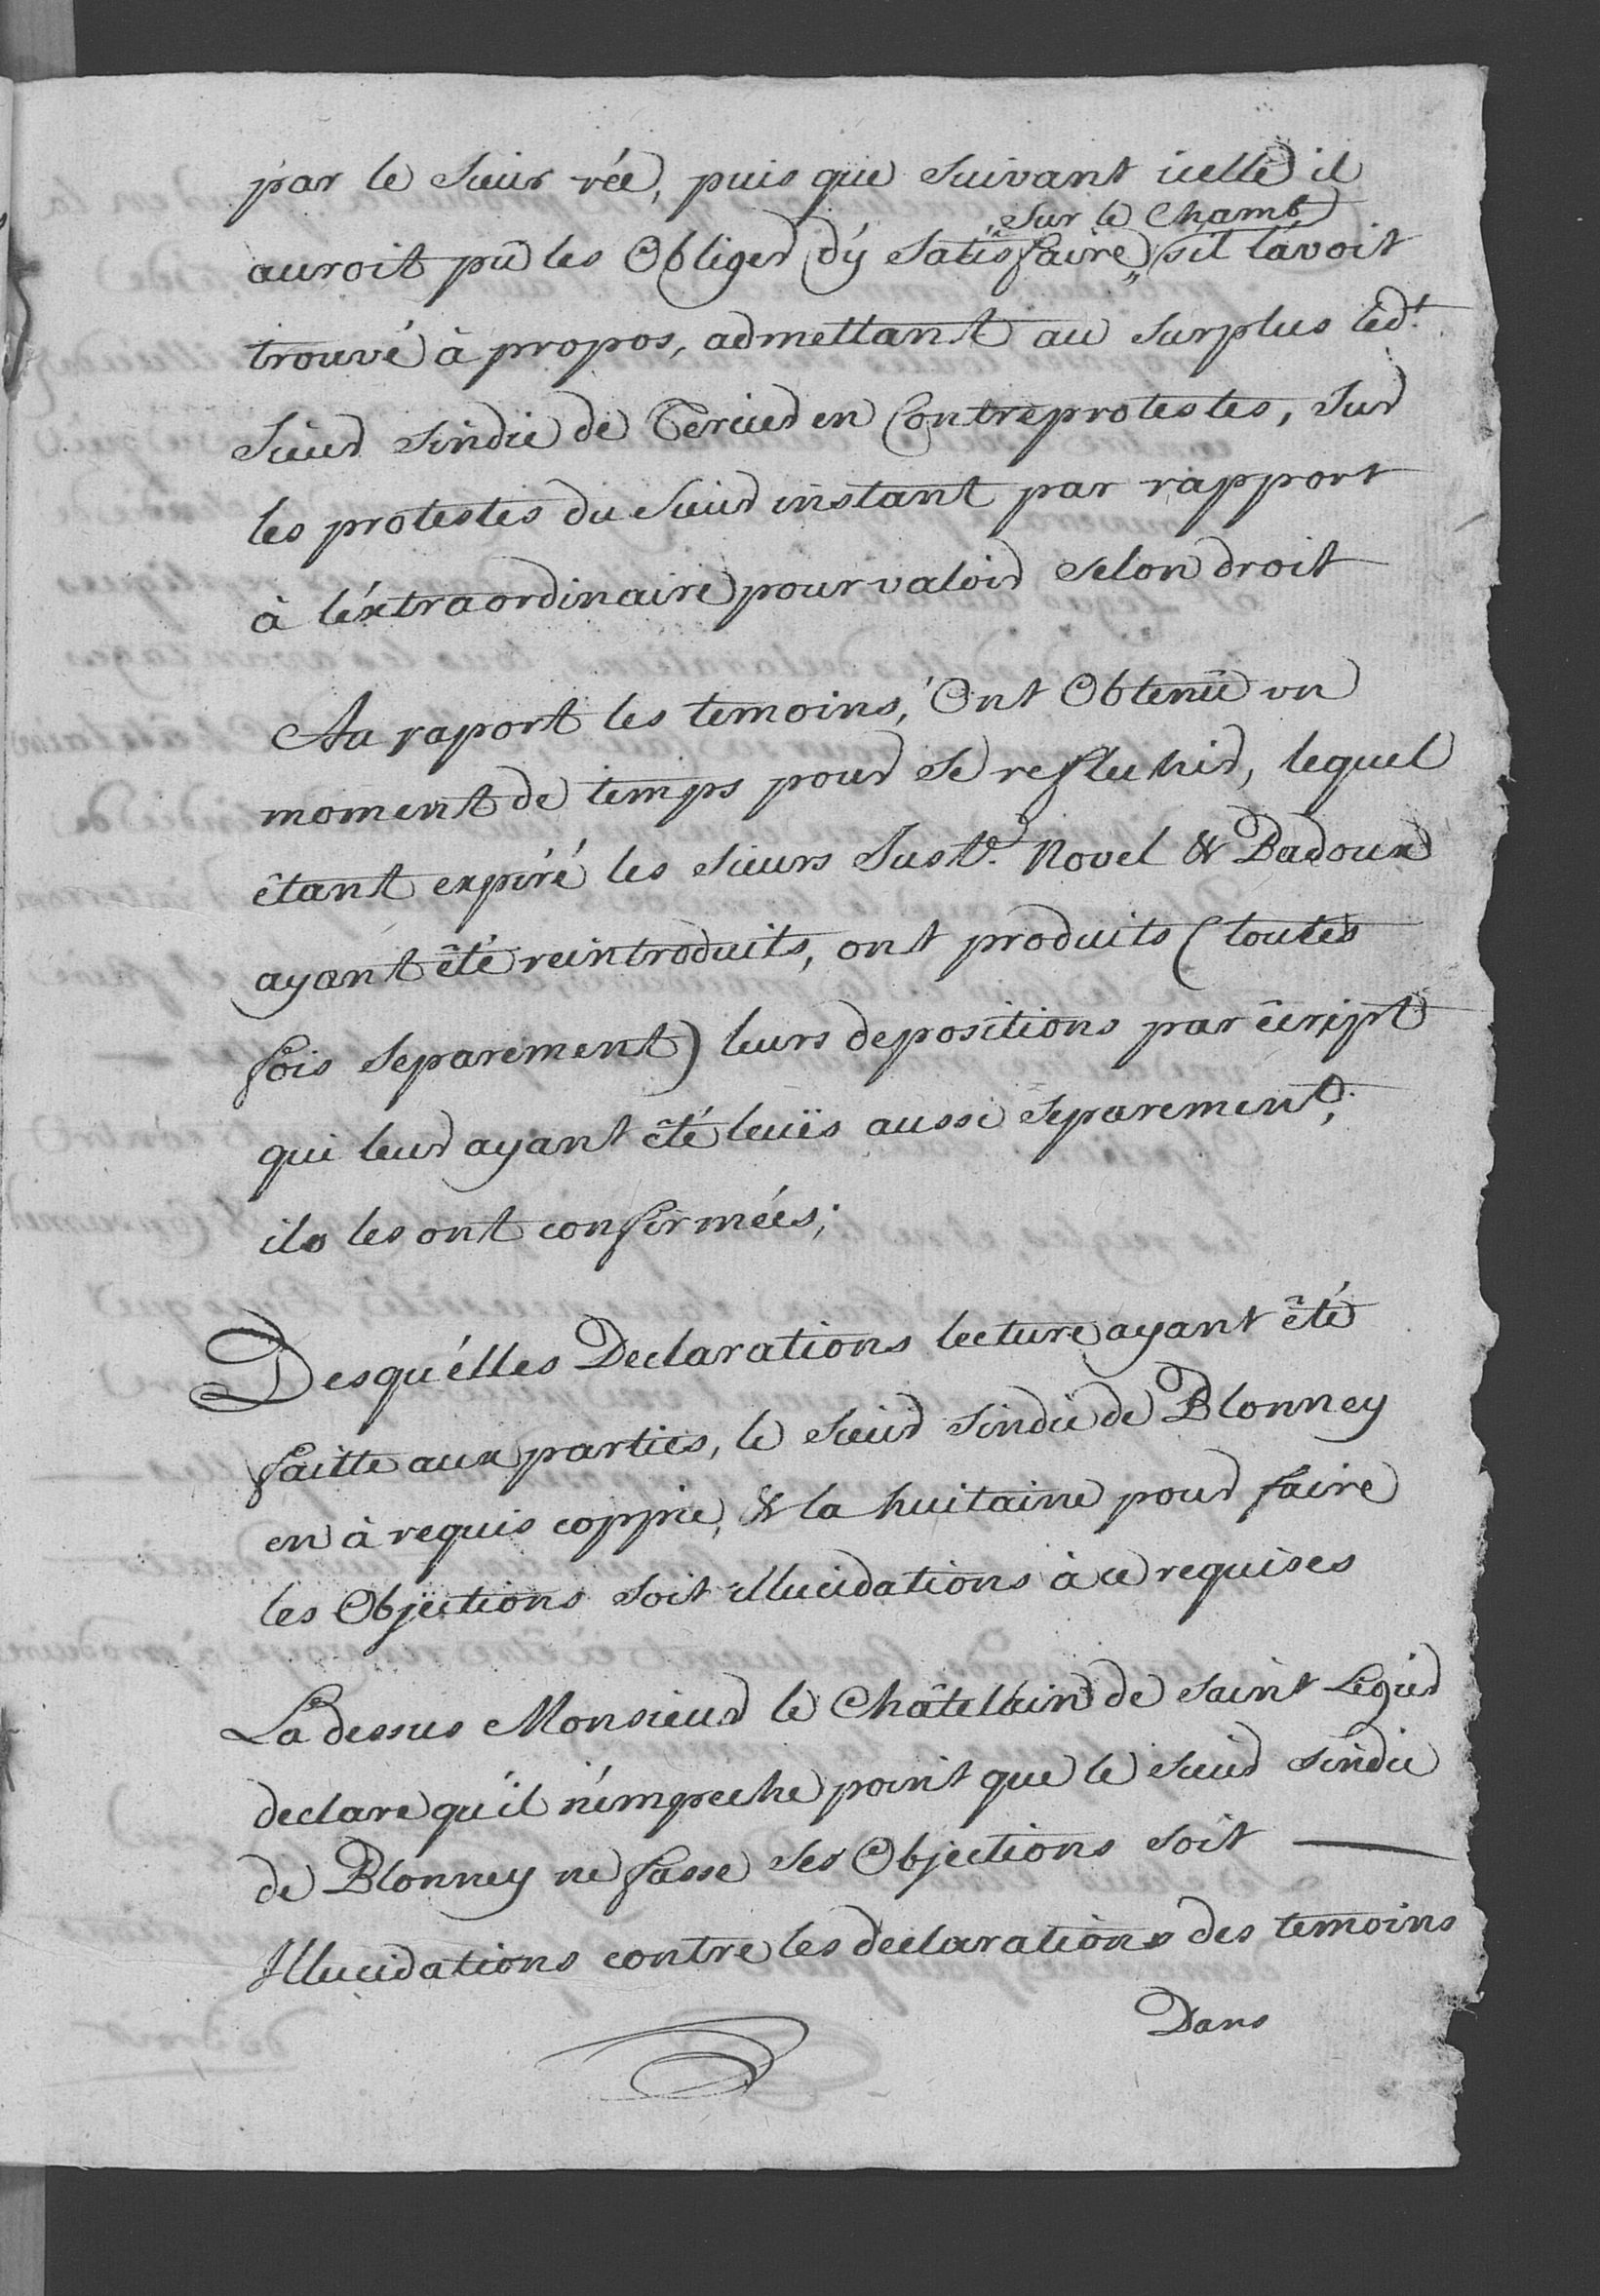 par le Sieur rée, puis que suivant icelle il
auroit pû les Obliger d'ÿ satisfaire „ sur le Chamt „ s'il l'avoit
trouvé à propos, admettant au surplus led.t
Sieur Sindic de Tercier en Contreprotestes, sur
les protestes du Sieur instant par rapport
à l'éxtraordinaire pour valoir selon droit
Au raport les temoins, Ont Obtenû un
moment de temps pour se refléchir, lequel
êtant expiré les Sieurs Just.e Novel & Badoux
ayant êté reintroduits, ont produits (toutes
fois separement) leurs depositions par êcript
qui leur ayant êté leuës aussi separement,
ils les ont confirmées;
Desqu'élles Declarations lecture ayant êté
faitte aux parties, le Sieur Sindic de Blonney
en à requis coppie, & la huitaine pour faire
les Objections soit illucidations à ce requises
La dessus Monsieur le Châtelain de Saint Legier
declare qu'il n'émpeche point que le Sieur Sindic
de Blonney ne fasse ses Objections soit —
Illucidations contre les declarations des temoins
Dans